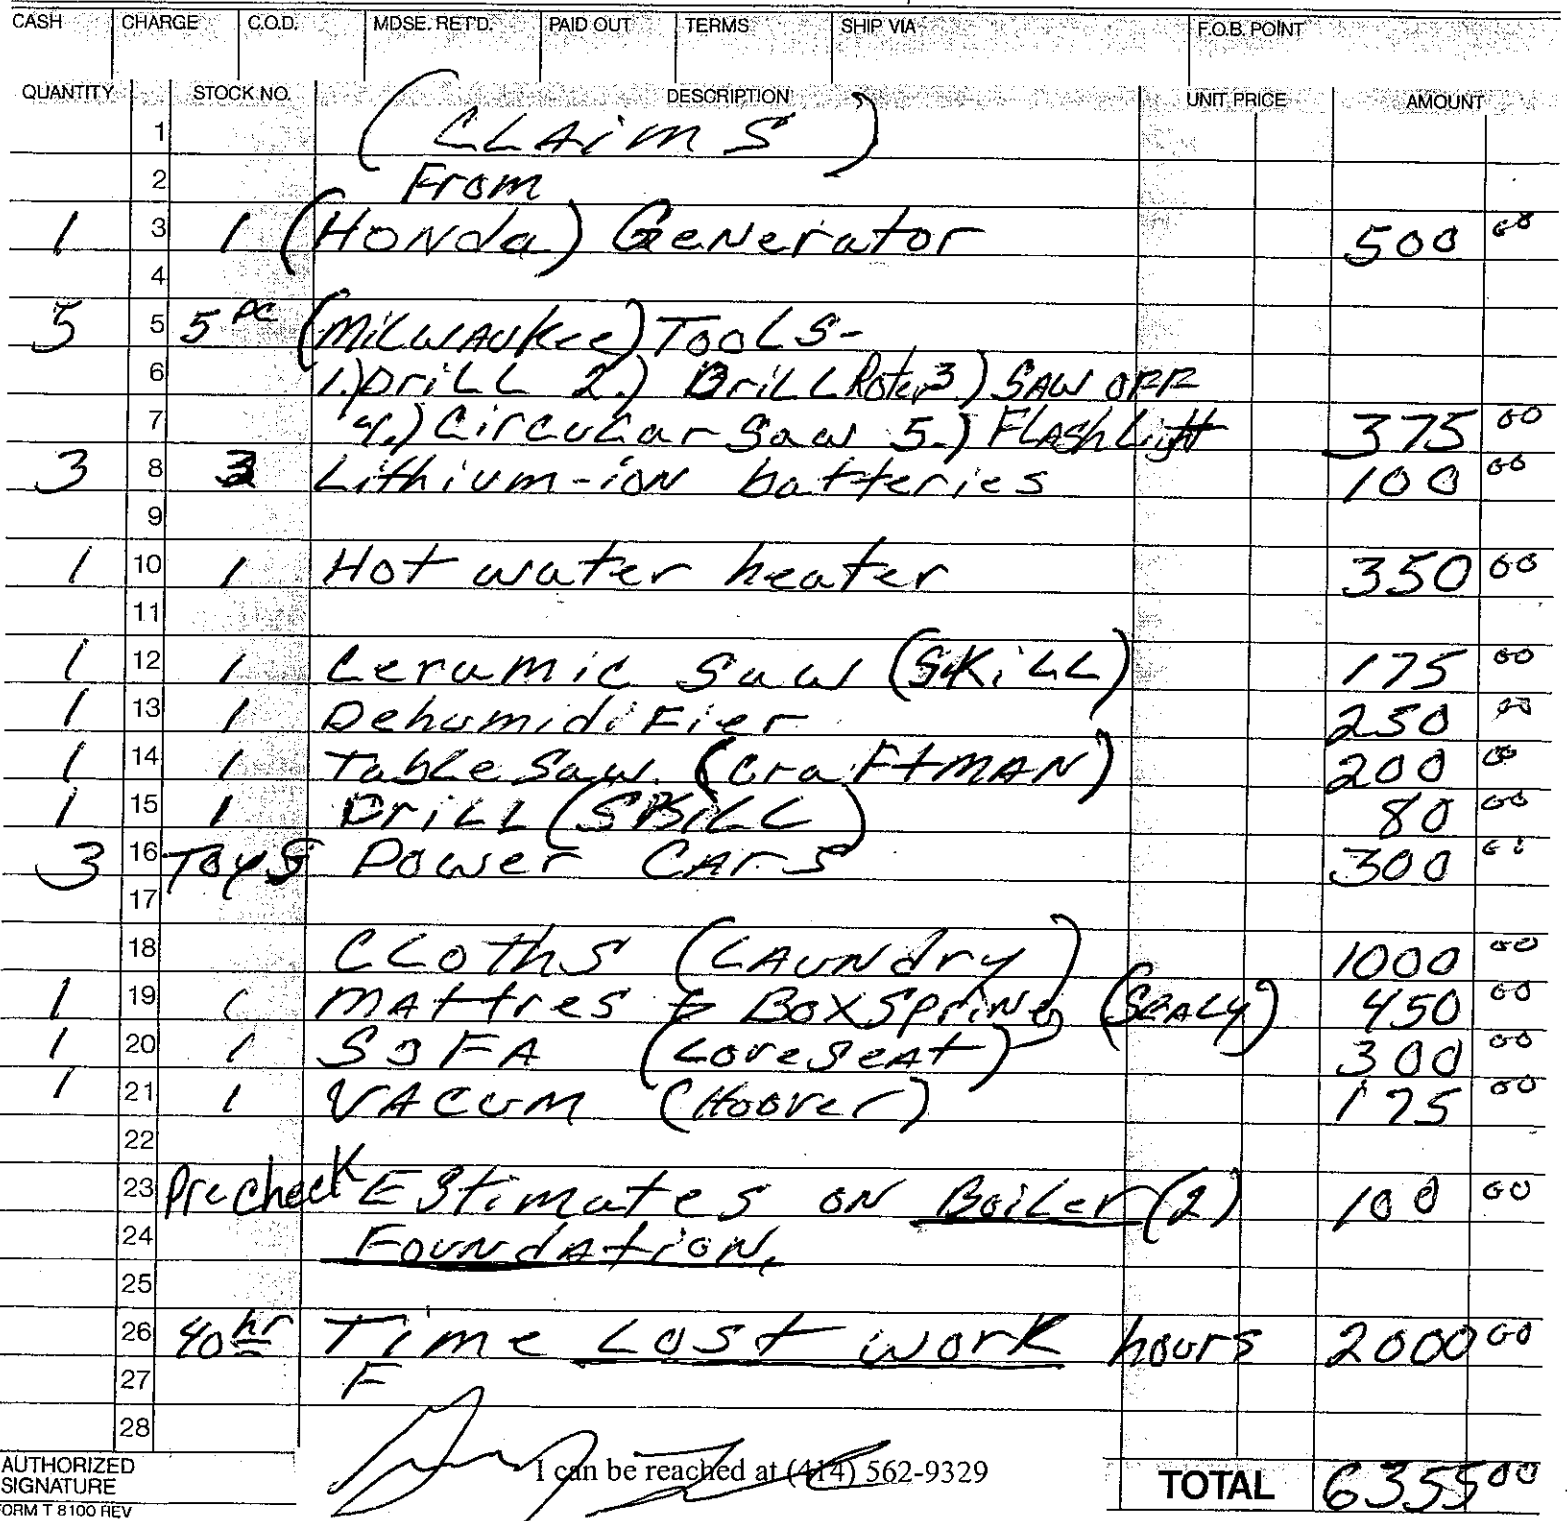 CASH CHARGE C.O.D. MDSE. RET'D. PAID OUT TERMS SHIP VIA F.O.B. POINT
QUANTITY STOCK NO. DESCRIPTION UNIT PRICE AMOUNT
1 (CLAimS)
2 From
1 3 1 (HONda) GeNerator 500 00
4
5 5 5 PC (MiLWAUKee) TooLS-
6 1.) DriLL 2.) DriLL Roter 3) SAW OFF
7 4.) Circular Saw 5.) FLAShLight 375 00
3 8 3 Lithium-ioN batteries 100 00
9
1 10 1 Hot water heater 350 00
11
1 12 1 Ceramic Saw (SKiLL) 175 00
1 13 1 DehumidiFier 250 00
1 14 1 TabLe Saw. (CraFtmAN) 200 00
1 15 1 DriLL (SKiLL) 80 00
3 16 Toys Power CArS 300 00
17
18 CLothS (LAUNdry) 1000 00
1 19 1 MAttres & BoxSpriNg (SeALy) 450 00
1 20 1 SoFA (LoveSeAt) 300 00
1 21 1 VACUM (Hoover) 175 00
22
23 Precheck EStimates oN BoiLer (2) 100 00
24 FouNdAtioN,
25
26 40 hr Time Lost work hours 2000 00
27 F
28
AUTHORIZED
SIGNATURE
I can be reached at (414) 562-9329
TOTAL 6355 00
FORM T 8100 REV